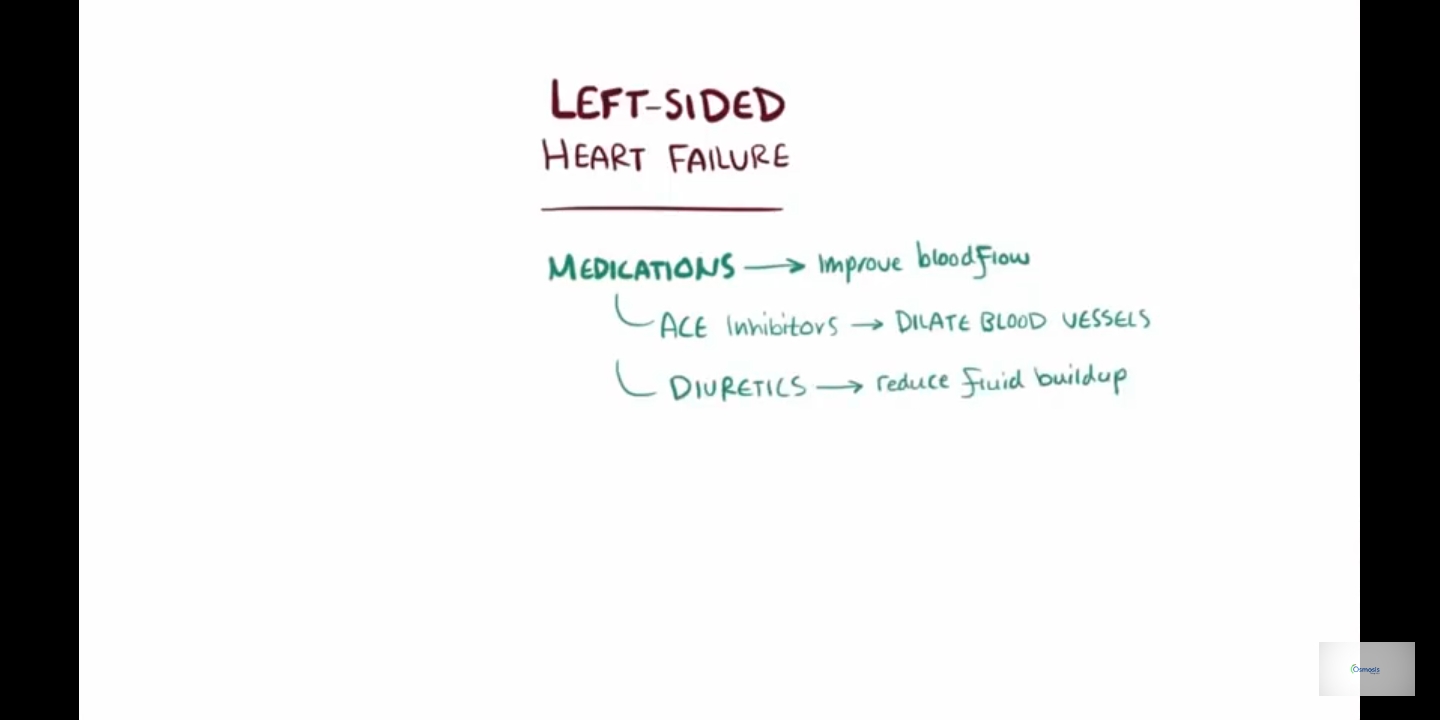 LEFT-SIDED
HEART FAILURE
MEDICATIONS → Improve bloodflow
ACE Inhibitors → DILATE BLOOD VESSELS
DIURETICS → reduce fluid buildup
Osmosis